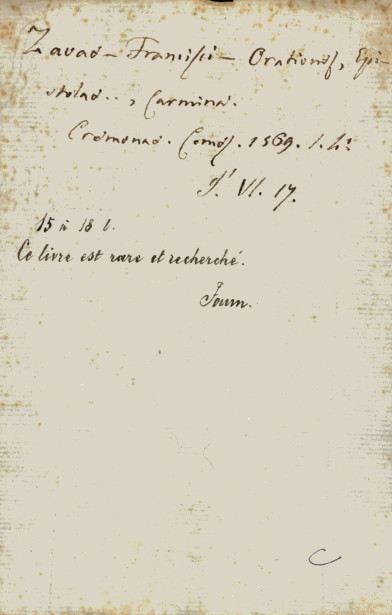 Zavae – Francisci – Orationes, Epi-
stolae.., Carmina.
Cremonae. Comes. 1569. 1. 4º
J. VI. 17.
15 à 18 l.
Ce livre est rare et recherché.
Fourn.
C